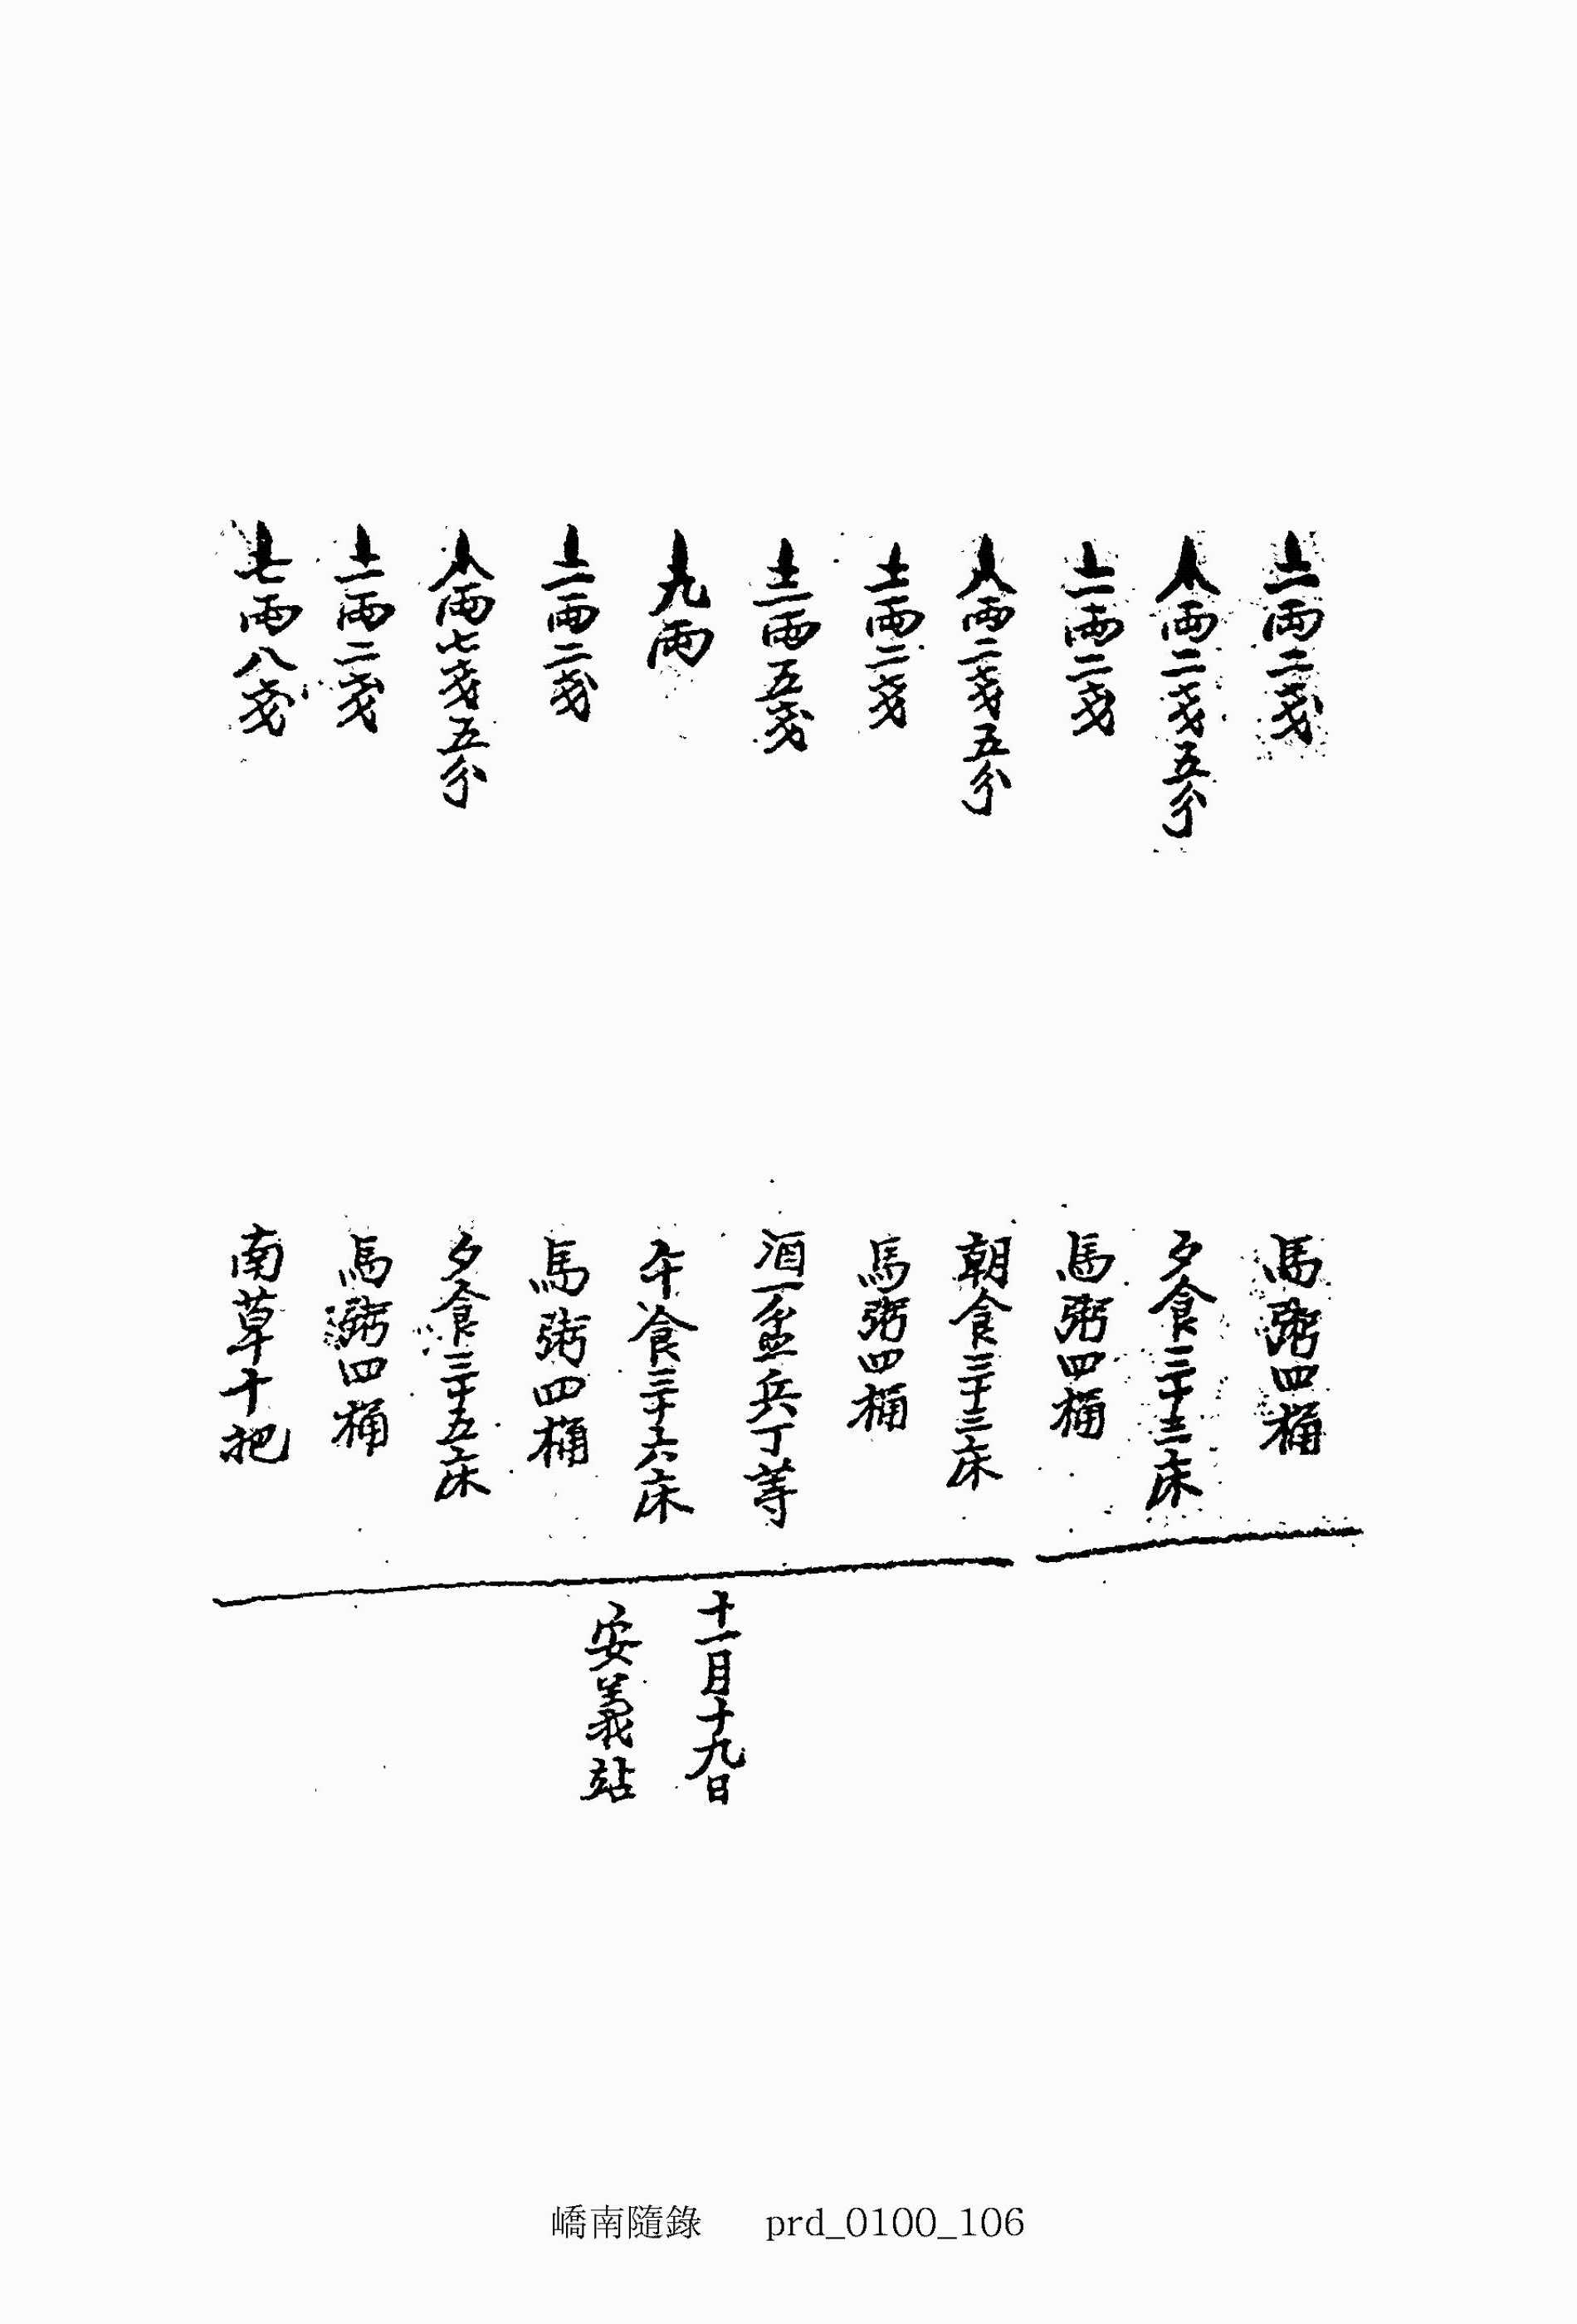 一兩二戔 馬粥四桶
八兩二戔五分 夕食三十三床
一兩二戔 馬粥四桶
八兩二戔五分 朝食三十三床
一兩二戔 馬粥四桶
二兩五戔 酒一盆兵丁等
九兩 午飡三十六床
一兩二戔 馬粥四桶
八兩七戔五分 夕食三十五床
一兩二戔 馬粥四桶
七兩八戔 南草十把
十一月十九日
安義站
嶠南隨錄 prd_0100_106